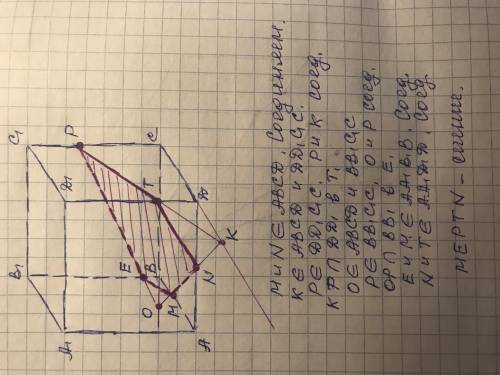 B₁
C₁
A₁
D₁
P
E
B
C
O
T
M
A
N
D
K
M и N ∈ ABCD, Соединяем.
K ∈ ABCD и DD₁C₁C.
P ∈ DD₁C₁C, P и K соед.
KP ∩ DD₁ в T.
O ∈ ABCD и BB₁C₁C
P ∈ BB₁C₁C, O и P соед.
OP ∩ BB₁ в E.
E и M ∈ AA₁B₁B, соед.
N и T ∈ AA₁D₁D, соед.
MEPTN – сечение.